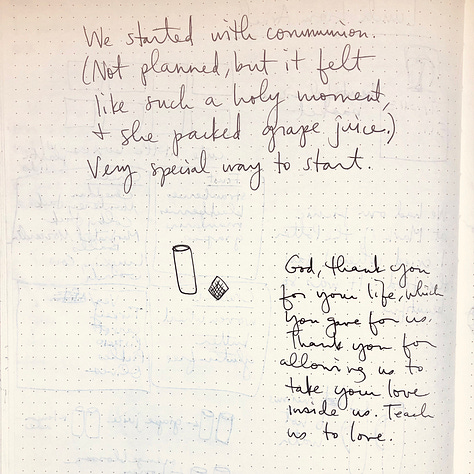 We started with communion.
(Not planned, but it felt
like such a holy moment,
+ she packed grape juice.)
Very special way to start.
God, thank you
for your life, which
you gave for us.
Thank you for
allowing us to
take your love
inside us. Teach
us to love.